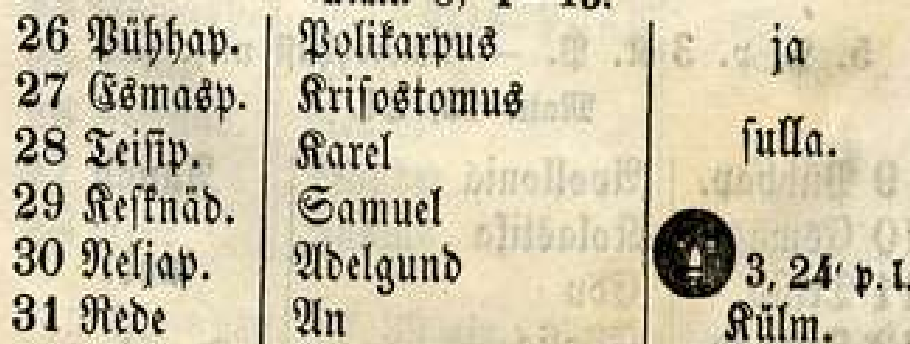 26 Pühhap. Polikarpus ja
27 Esmasp. Krisostomus
28 Teisip. Karel sulla.
29 Kesknäd. Samuel
30 Neljap. Adelgund 3, 24' p. l.
31 Rede An Külm.